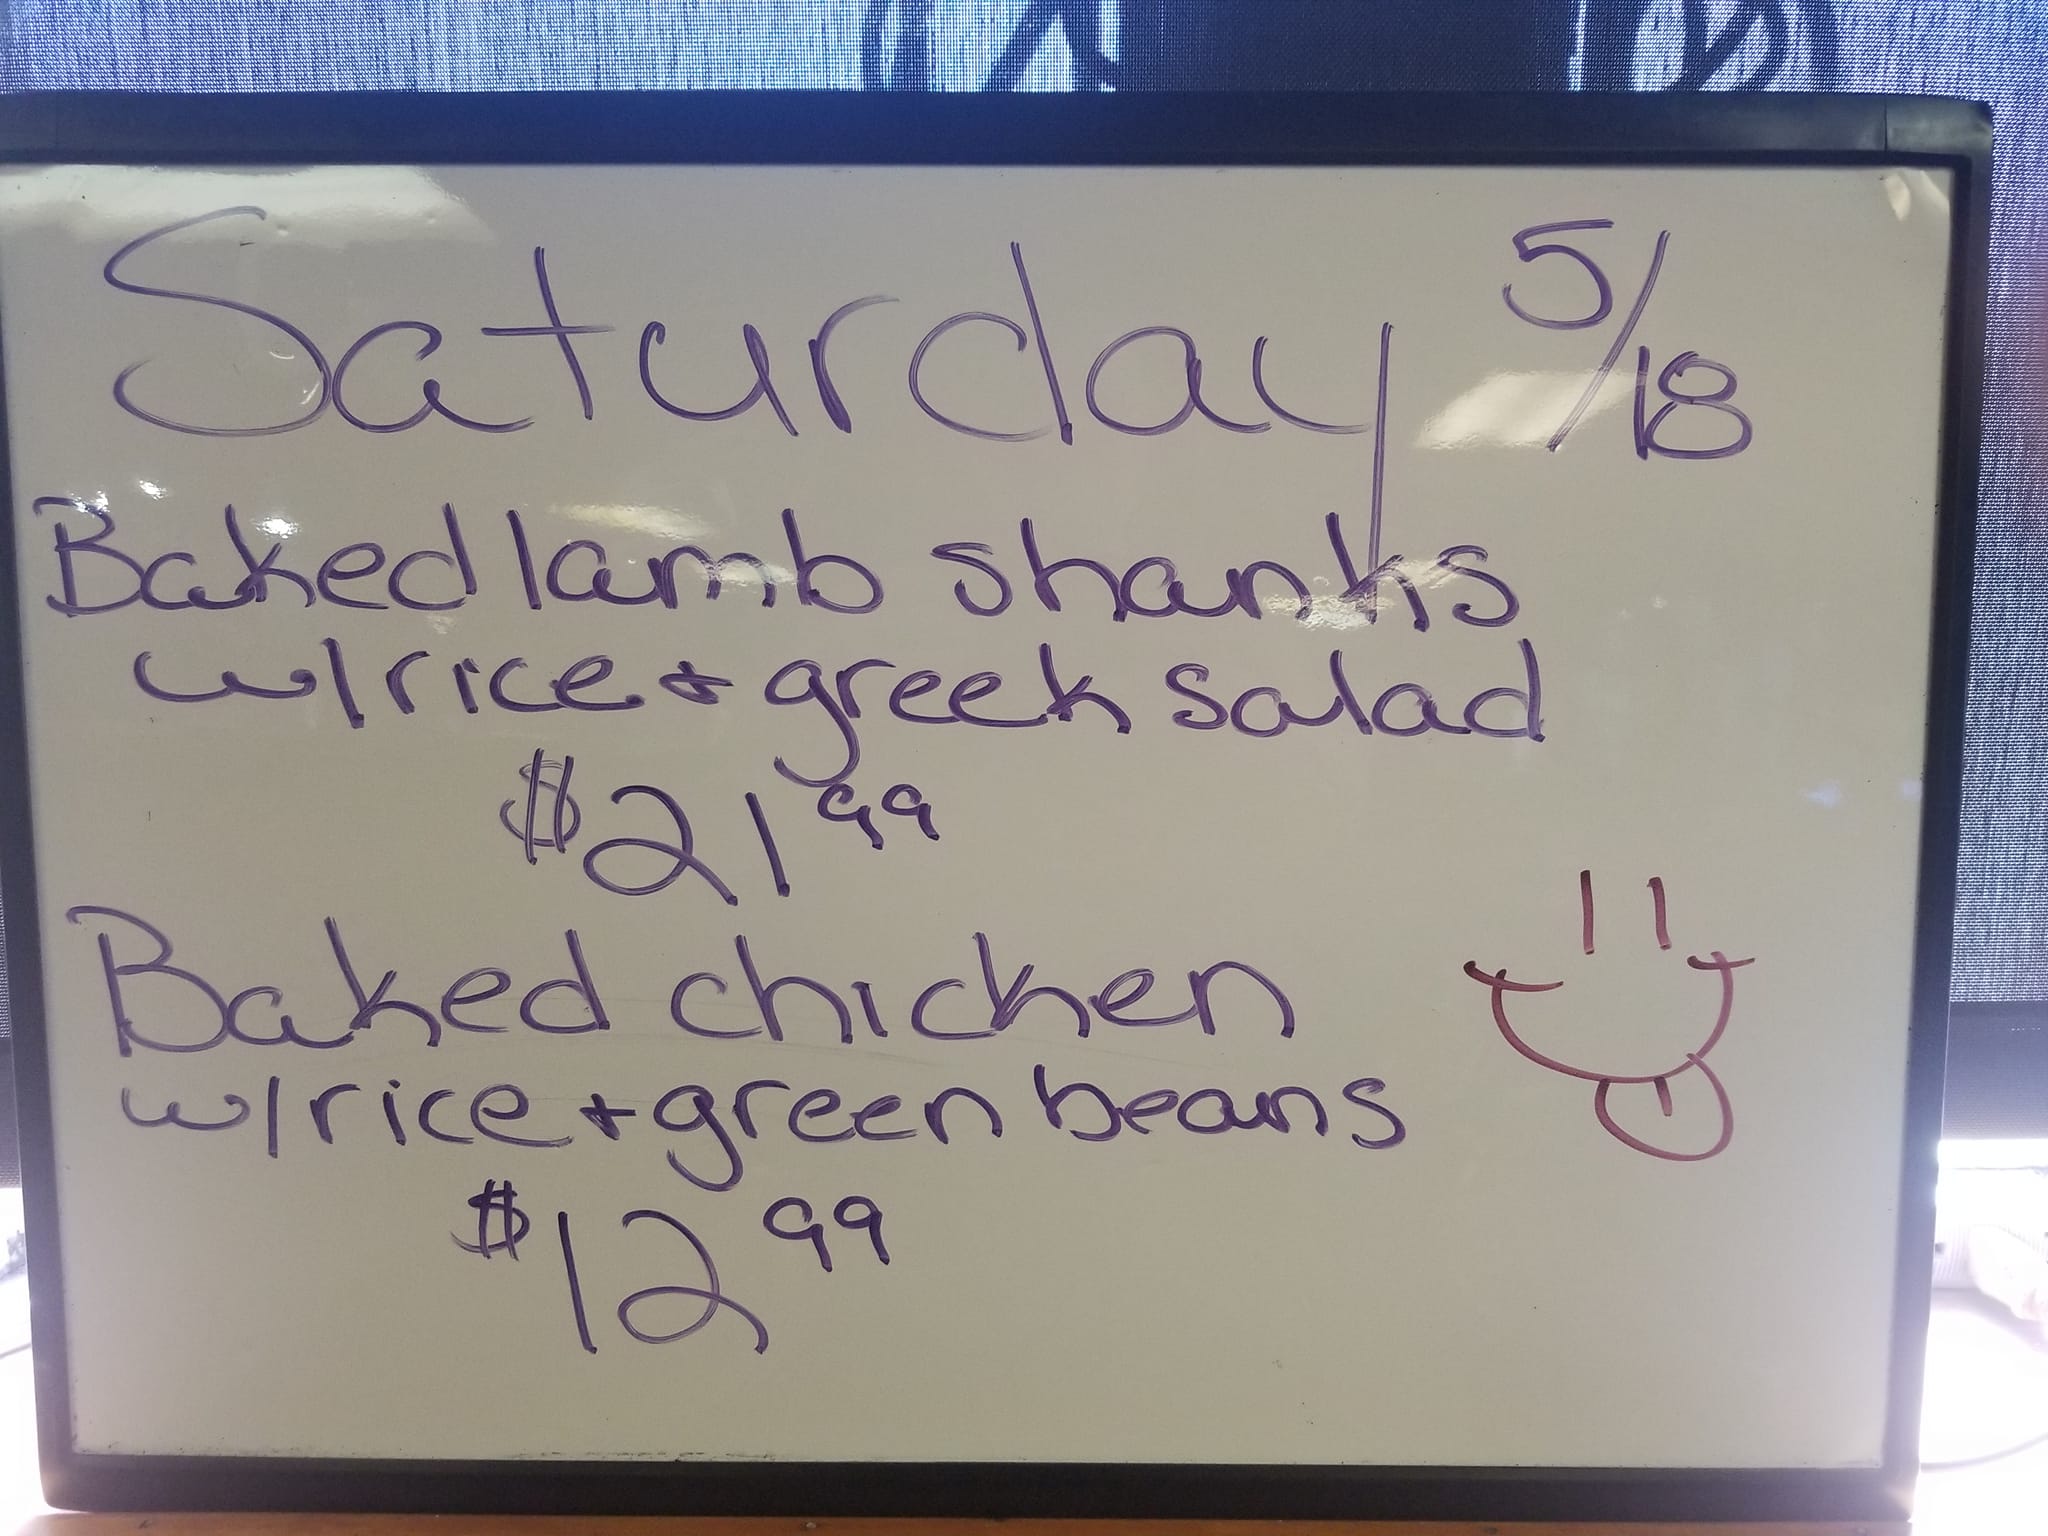 Saturday 5/18
Baked lamb shanks
w/rice + greek salad
$21 99
Baked chicken
w/rice + green beans
$12 99